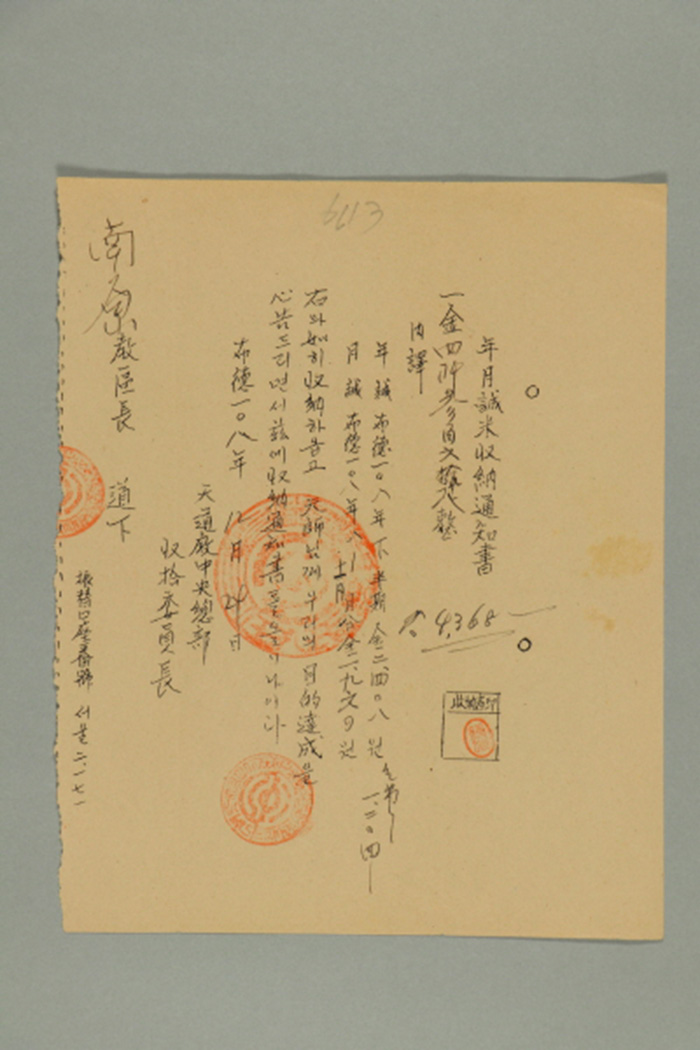 6113
年月誠米收納通知書
一金四阡參百六拾八整
4,368
內譯
年誠 布德一〇八年下半期 金二,四〇八원
一,二〇四
月誠 布德一〇八年 月分金一,九六〇원
右와如히收納하옵고 님께우리의目的達成을
心告드리면서玆에收納通知書 나이다
布德一〇八年 12月 24日
天道敎中央總部
收拾委員長
南原敎區長 道下
振替口座番號 서울 二,一七一
收納者印